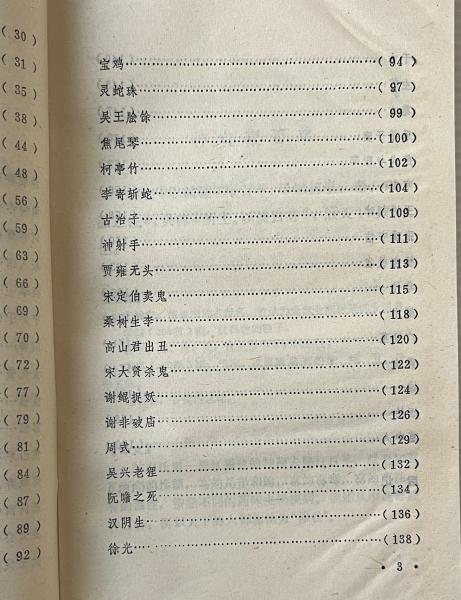 ( 30 )
( 31 )
( 35 )
( 38 )
( 44 )
( 48 )
( 56 )
( 59 )
( 63 )
( 66 )
( 69 )
( 70 )
( 72 )
( 77 )
( 79 )
( 81 )
( 84 )
( 87 )
( 89 )
( 92 )
宝鸡……………………………………( 94 )
灵蛇珠…………………………………( 97 )
吴王脍馀………………………………( 99 )
焦尾琴…………………………………( 100 )
柯亭竹…………………………………( 102 )
李寄斩蛇………………………………( 104 )
古冶子…………………………………( 109 )
神射手…………………………………( 111 )
贾雍无头………………………………( 113 )
宋定伯卖鬼……………………………( 115 )
桑树生李………………………………( 118 )
高山君出丑……………………………( 120 )
宋大贤杀鬼……………………………( 122 )
谢鲲捉妖………………………………( 124 )
谢非破庙………………………………( 126 )
周式……………………………………( 129 )
吴兴老狸………………………………( 132 )
阮瞻之死………………………………( 134 )
汉阴生…………………………………( 136 )
徐光……………………………………( 138 )
· 3 ·